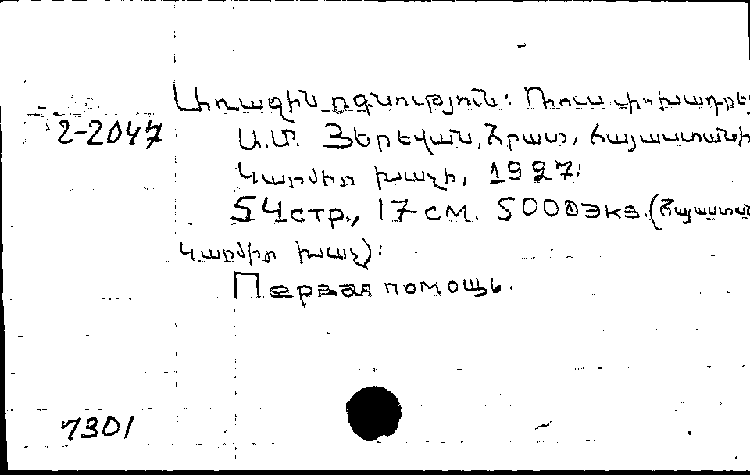 Առաջին օգնություն: Ռուս. փոխադրե
2-2047 Ա.Մ. Երևան, Հրատ. Հայաստանի
Կարմիր խաչի, 1997.
54 стр., 17 см. 5000 экз. (Հայաստան
Կարմիր խաչ):
Первая помощь.
7301